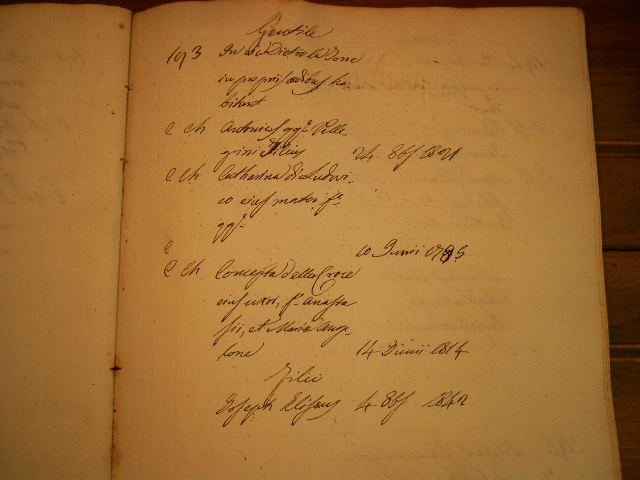 Gentile
193 In via Dietro la Torre
in propriis ædibus ha
bitant
C Ch Antonius qq.m Pelle
grini Filius 24. 8bris 1821
C Ch Catharina di Ludovi-
co eius mater f.a
qq.m
C 10 Junii 1795
C Ch Concepta della Croce
eius uxor, f.a Anasta
sii, et Mariæ Ange
lone 14 Junii 1814
Filii
Joseph Elisæus 4 8bris 1842